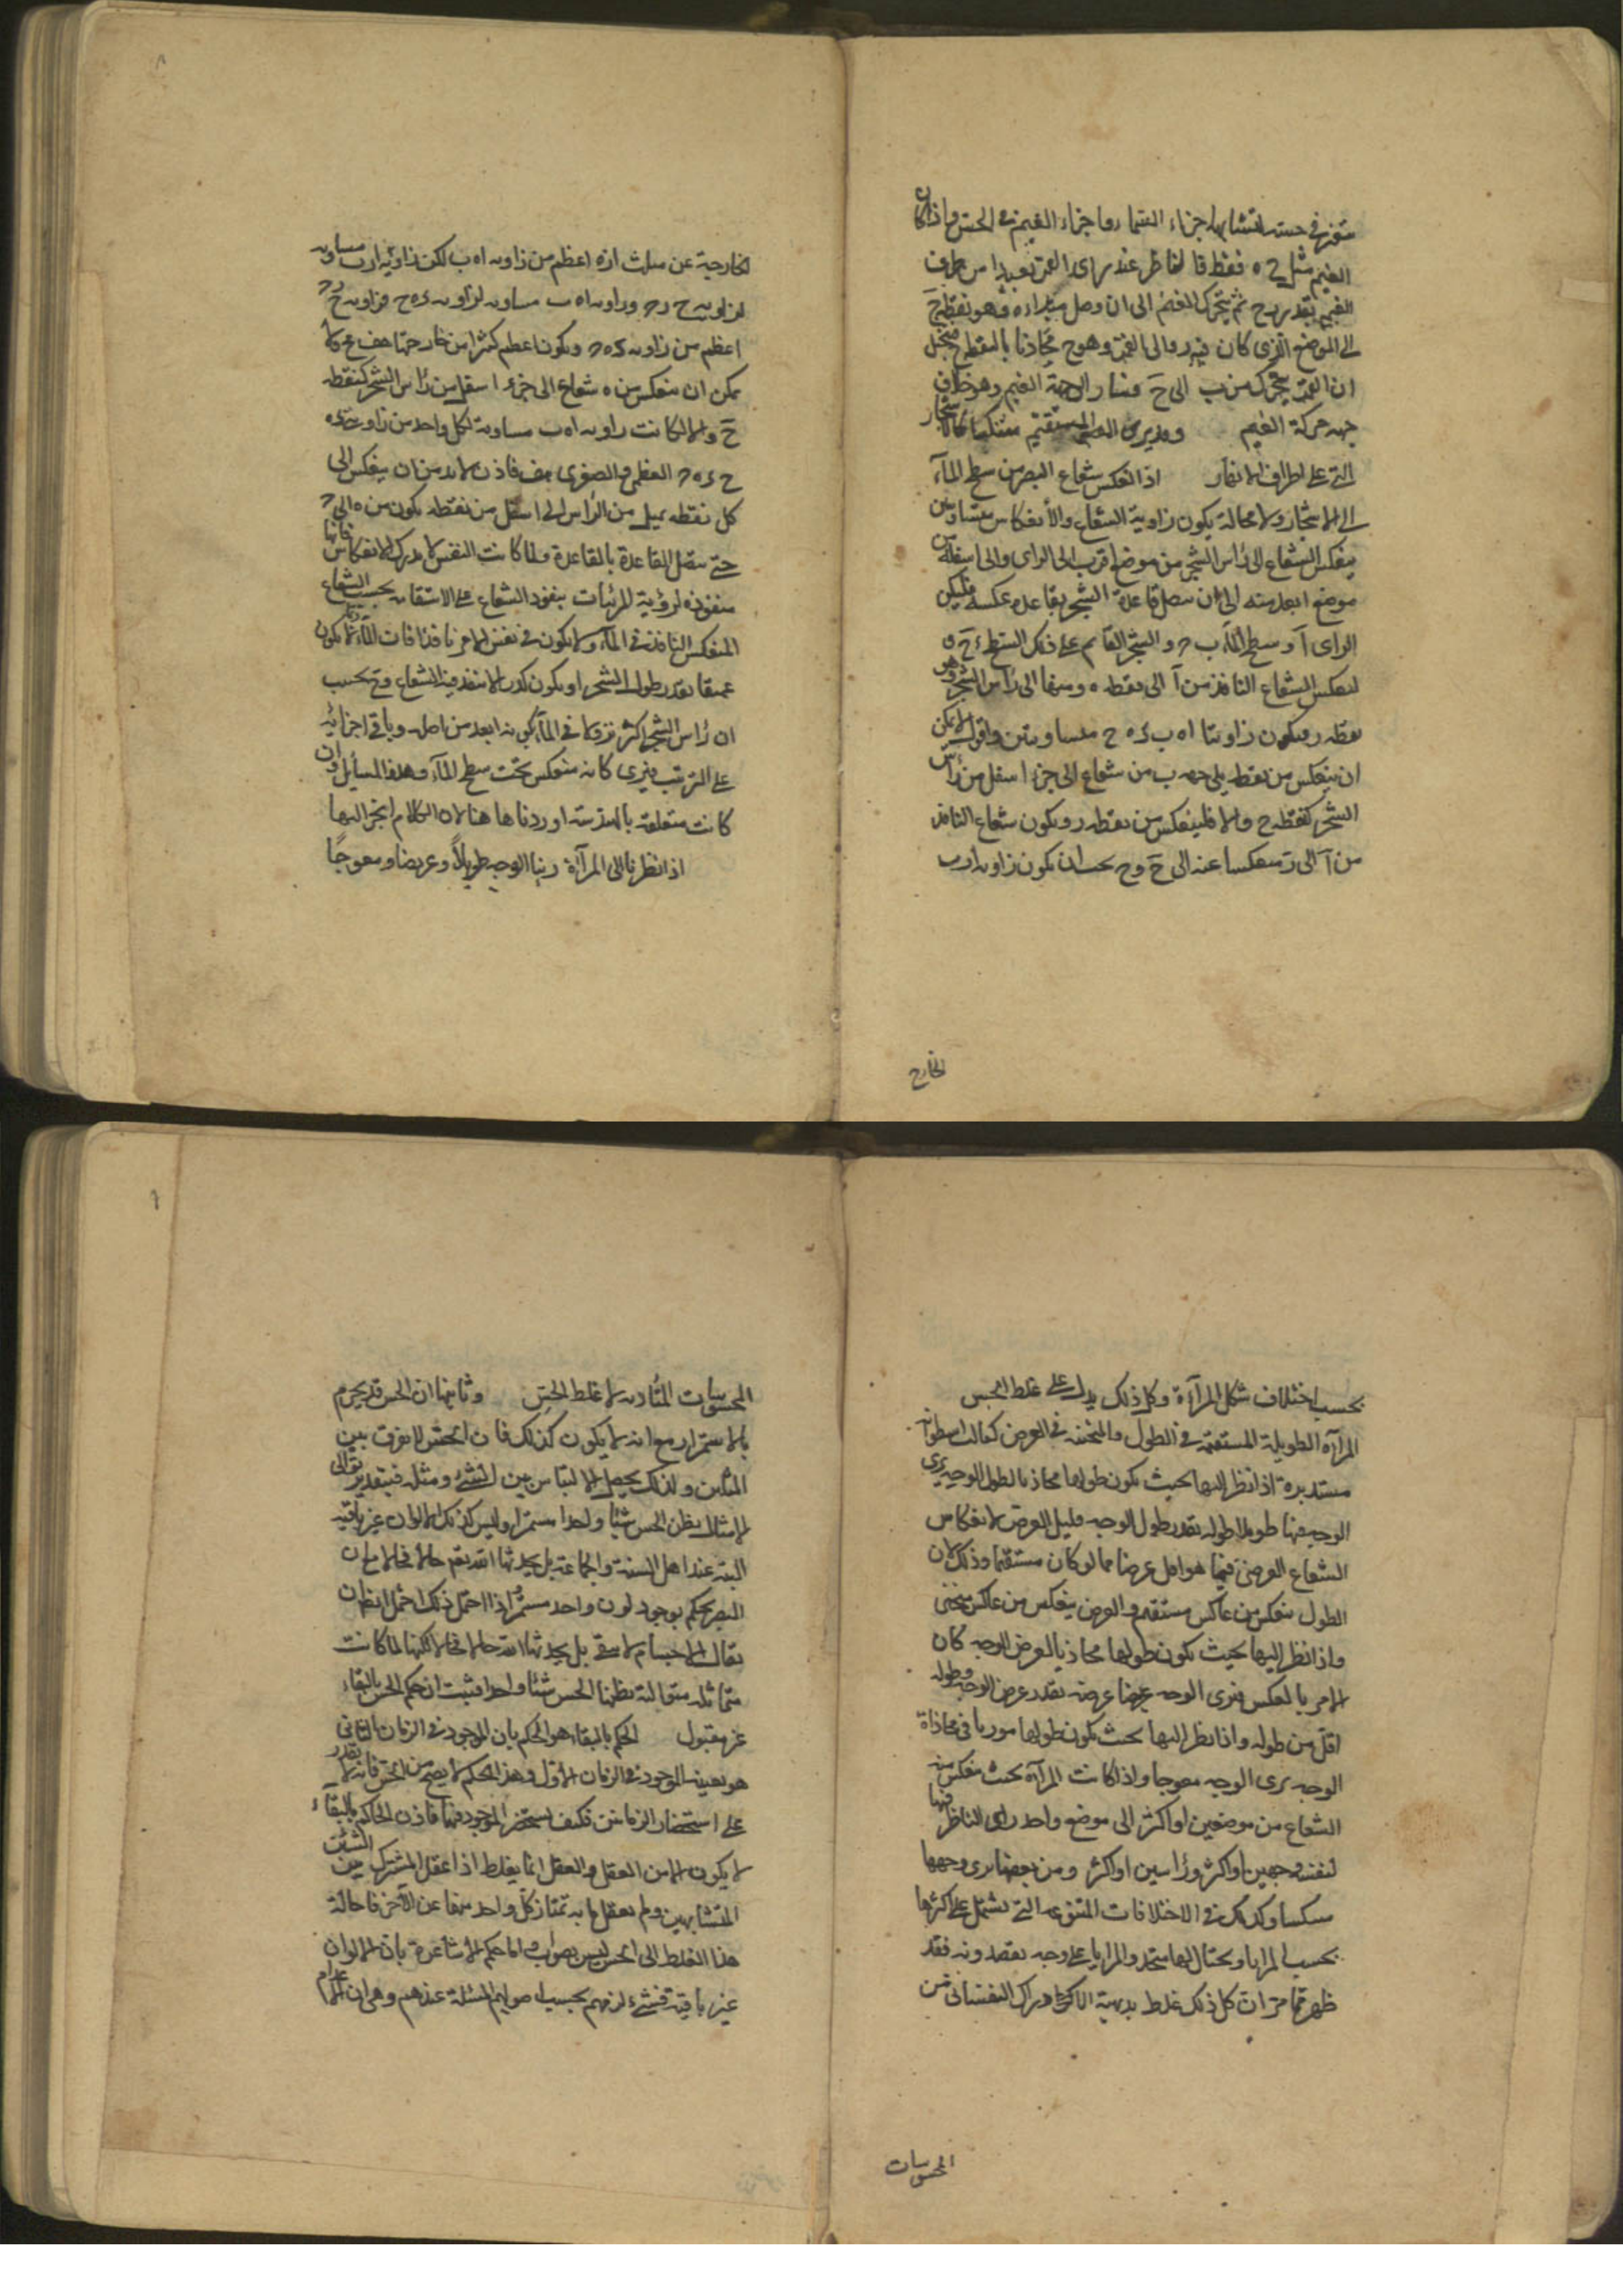 اجزاء السماء واجزاء الغيم في الحس واذا كان
الغيم مثل ح ه فقط فالناظر عند يرى القمر بعيدا من طرف
الغيم بقدر ثم يتحرك الغيم الى ان وصل وهو نقطة ح
الى الموضع الذي كان فيه والى القمر وهو ح محاذيا بالنقطة فيتخيل
ان القمر يتحرك من ب الى ح الغيم وهو خلاف
جهة حركة الغيم ويرى المستقيم منتكسا كالاشجار
التي على اطراف الانهار اذا انعكس شعاع البصر من سطح المآء
الى الاشجار ولا محالة يكون زاوية الشعاع والأنعكاس متساويتين
ينعكس الشعاع الى رأس الشجر من موضع اقرب الى الراى والى اسفله من
موضع ابعد منه الى ان يتصل قاعدة الشجر بقاعدة عكسه فليكن
الراى آ وسطح المآء ب والشجر القايم على ذلك السطح
لينعكس الشعاع النافذ من آ الى نقطه ه ومنها الى رأس الشجر وهو
نقطه ر ويكون زاويتا ا ه ب ح متساويتين واقول لا يمكن
ان ينعكس من نقطه يلى جهة ب من شعاع الى جزء اسفل من رأس
الشجر كنقطة ح والا فلينعكس من نقطه ر ويكون شعاع النافذ
من آ الى ر منعكسا عنه الى ح وح يجب ان يكون زاويه ا ر ب
الخارج
الخارجية عن مثلث ا ر ه اعظم من زاويه ا ه ب لكن زاوية ا ر ب مساوية
لزاوية ح ر وزاويه ا ه ب مساويه لزاويه
اعظم من زاويه ويكون اعظم كثيرا من خارجتها هف
يمكن ان ينعكس من ه شعاع الى جزء اسفل من رأس الشجر كنقطه
ح والا لكانت زاويه ا ه ب مساوية لكل واحد من زاويتى
العظمى والصغرى هف فاذن لا بد من ان ينعكس الى
كل نقطه يميل من الرأس الى اسفل من نقطه يكون من ه الى
حتى يتصل القاعدة بالقاعدة ولما كانت النفس لا يدرك الانعكاس فانها
متعوده لرؤية المرئيات بنفوذ الشعاع على الاستقامه يحسب الشعاع
المنعكس النافذ في المآء ولا يكون في نفس الامر نافذا فان المآء ربما لا يكون
عميقا بقدر طول الشجر او يكون كدرا لا ينفذ فيه الشعاع وح يحسب
ان رأس الشجر اكثر نزولا في المآء لكونه ابعد من اصله وباقي اجزائه
على الترتيب فيرى كانه منعكس تحت سطح المآء وهذه المسائل وان
كانت متعلقه بالهندسة اوردناها هنا لان الكلام انجر اليها
اذا نظرنا الى المرآة رينا الوجه طويلاً وعريضا ومعوجًا
بحسب اختلاف شكل المرآءة وكل ذلك يدل على غلط الحس
المرآءة الطويلة المستقيمة في الطول والمنحنية في العرض كقالب اسطوانة
مستديرة اذا نظر اليها بحيث يكون طولها محاذيا لطول الوجه يرى
الوجه فيها طويلا طوله بقدر طول الوجه قليل العرض لانعكاس
الشعاع العرضى فيها هو اقل عرضا مما لو كان مستقيما وذلك لان
الطول ينعكس من عاكس مستقيم والعرض ينعكس من عاكس منحنى
واذا نظر اليها بحيث يكون طولها محاذيا لعرض الوجه كان
الامر بالعكس فيرى الوجه عريضا عرضه بقدر عرض الوجه وطوله
اقل من طوله واذا نظر اليها بحيث يكون طولها موربا في محاذاة
الوجه يرى الوجه معوجا واذا كانت المرآة بحيث ينعكس منه
الشعاع من موضعين او اكثر الى موضع واحد راى الناظر فيها
لنفسه وجهين او اكثر ورأسين او اكثر ومن بعضها يرى وجهها
منتكسا وكذلك في الاختلافات المتنوعه التي يشتمل على اكثرها
بحسب المرايا ويحتال لها متخذو المرايا على وجه يقصدونه فقد
ظهر كل ذلك غلط بديهة الادراك النفسانى من
المحسوسات
المحسوسات المتأديه لا غلط الحس وثانيها ان الحس قد يجزم
بالاستمرار مع انه لا يكون كذلك فان الحس لا يفرق بين
المثلين ولذلك يحصل الالتباس بين الشئ ومثله فبتقدير توالى
الامثال يظن الحس شيئا واحدا مستمرا وليس كذلك الالوان غير باقيه
البته عند اهل السنة والجماعة بل يحدثها الله تعم حالا فحالا مع ان
البصر يحكم بوجود لون واحد مستمر فاذا احتمل ذلك احتمل ايضا ان
يقال الاجسام لا تبقى بل يحدثها الله حالا فحالا لكنها لما كانت
متماثله متوالية يظنها الحس شيئا واحدا فثبت ان حكم الحس بالبقاء
غير مقبول الحكم بالبقاء هو الحكم بان الموجود في الزمان الثانى
هو بعينه الموجود في الزمان الاول وهذا الحكم لا يصح من الحس فانه لا يقدر
على استحضار الزمانين فكيف يستحضر الموجود فيها فاذن الحاكم بالبقآء
لا يكون الا من العقل والعقل انما يغلط اذا عقل المشترك بين الشيئين
المتشابهين ولم يعقل ما به تمتاز كل واحد منها عن الآخر فاحالة
هذا الغلط الى الحس ليس بصواب واما حكم الاشاعرة بان الالوان
غير باقية فشئ لزمهم بحسب اصولهم المسئلة عندهم وهي ان الاعدام